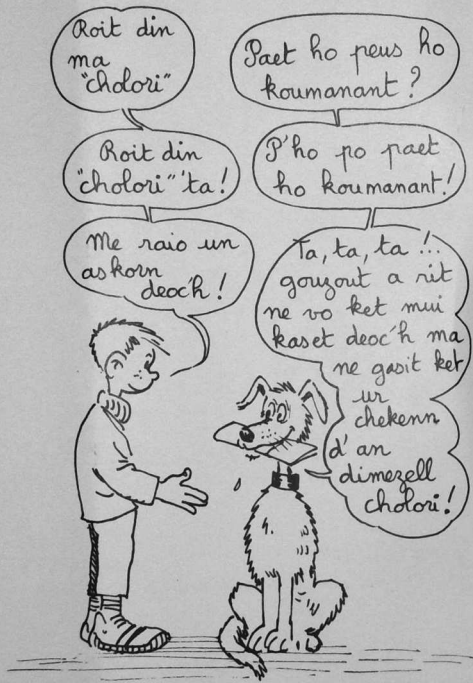 Roit din
ma
"cholori"
Paet ho peus ho
koumanant ?
Roit din
"cholori" 'ta !
P'ho po paet
ho koumanant !
Me raio un
askorn
deoc'h !
Ta, ta, ta !..
gouzout a rit
ne vo ket mui
kaset deoc'h ma
ne gasit ket
ur
chekenn
d'an
dimezell
cholori !